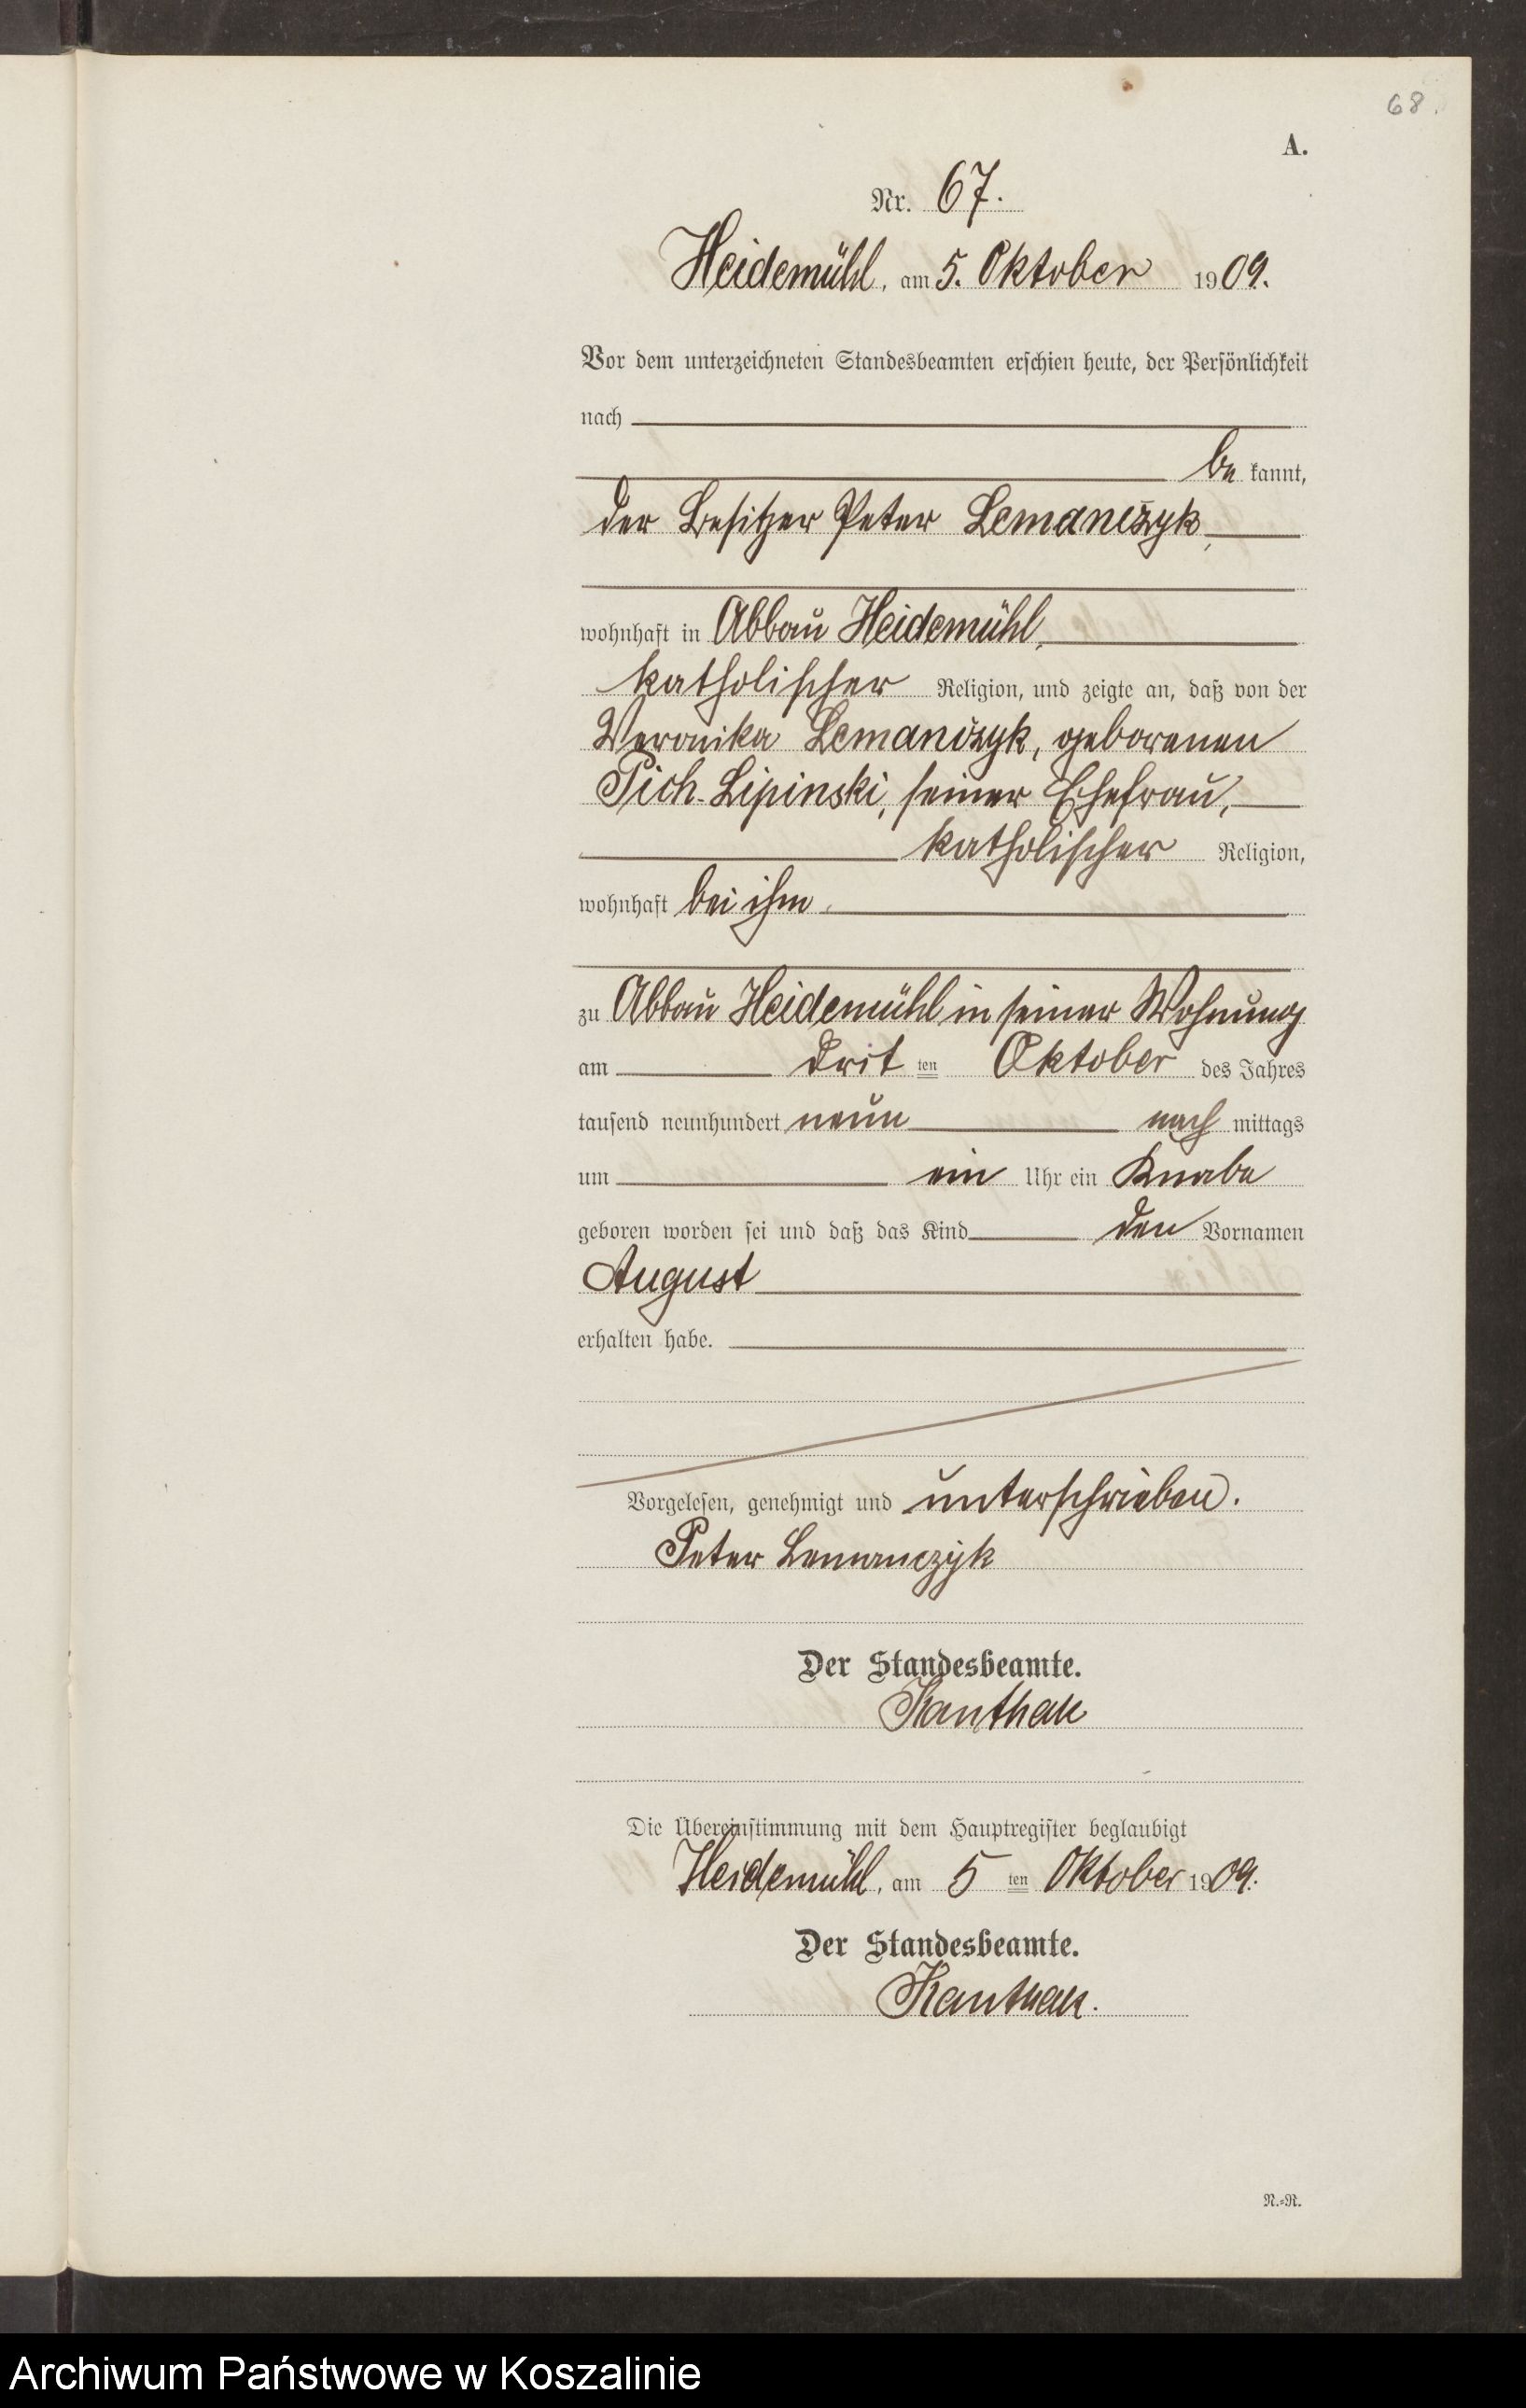 68.
A.
Nr. 67.
Heidemühl, am 5. Oktober 1909.
Vor dem unterzeichneten Standesbeamten erschien heute, der Persönlichkeit
nach
be kannt,
der Besitzer Peter Lemanczyk,
wohnhaft in Abbau Heidemühl,
katholischer Religion, und zeigte an, daß von der
Veronika Lemanczyk, geborenen
Pich-Lipinski, seiner Ehefrau,
katholischer Religion,
wohnhaft bei ihm
zu Abbau Heidemühl in seiner Wohnung
am drit ten Oktober des Jahres
tausend neunhundert neun nach mittags
um ein Uhr ein Knabe
geboren worden sei und daß das Kind den Vornamen
August
erhalten habe.
Vorgelesen, genehmigt und unterschrieben.
Peter Lemanczyk
Der Standesbeamte.
Kanthak
Die Übereinstimmung mit dem Hauptregister beglaubigt
Heidemühl, am 5 ten Oktober 1909.
Der Standesbeamte.
Kanthak.
N.=N.
Archiwum Państwowe w Koszalinie